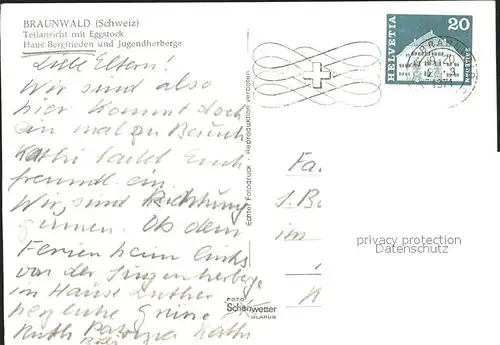 BRAUNWALD (Schweiz)
Teilansicht mit Eggstock
Haus Bergfrieden und Jugendherberge
Liebe Eltern!
Wir sind also
hier. Kommt doch
ein mal zu Besuch
Kathi ladet Euch
freundl. ein.
Wir sind Richtung
Ob dem
Ferienheim links
von der Jugendherberge
im Hause Luther
herzliche Grüsse
Ruth Kathi
Echter Fotodruck - Reproduktion verboten
FOTO
Schönwetter
GLARUS
HELVETIA
20
BRAUNWALD
1971
Fa
S. B
im
privacy protection
Datenschutz
K